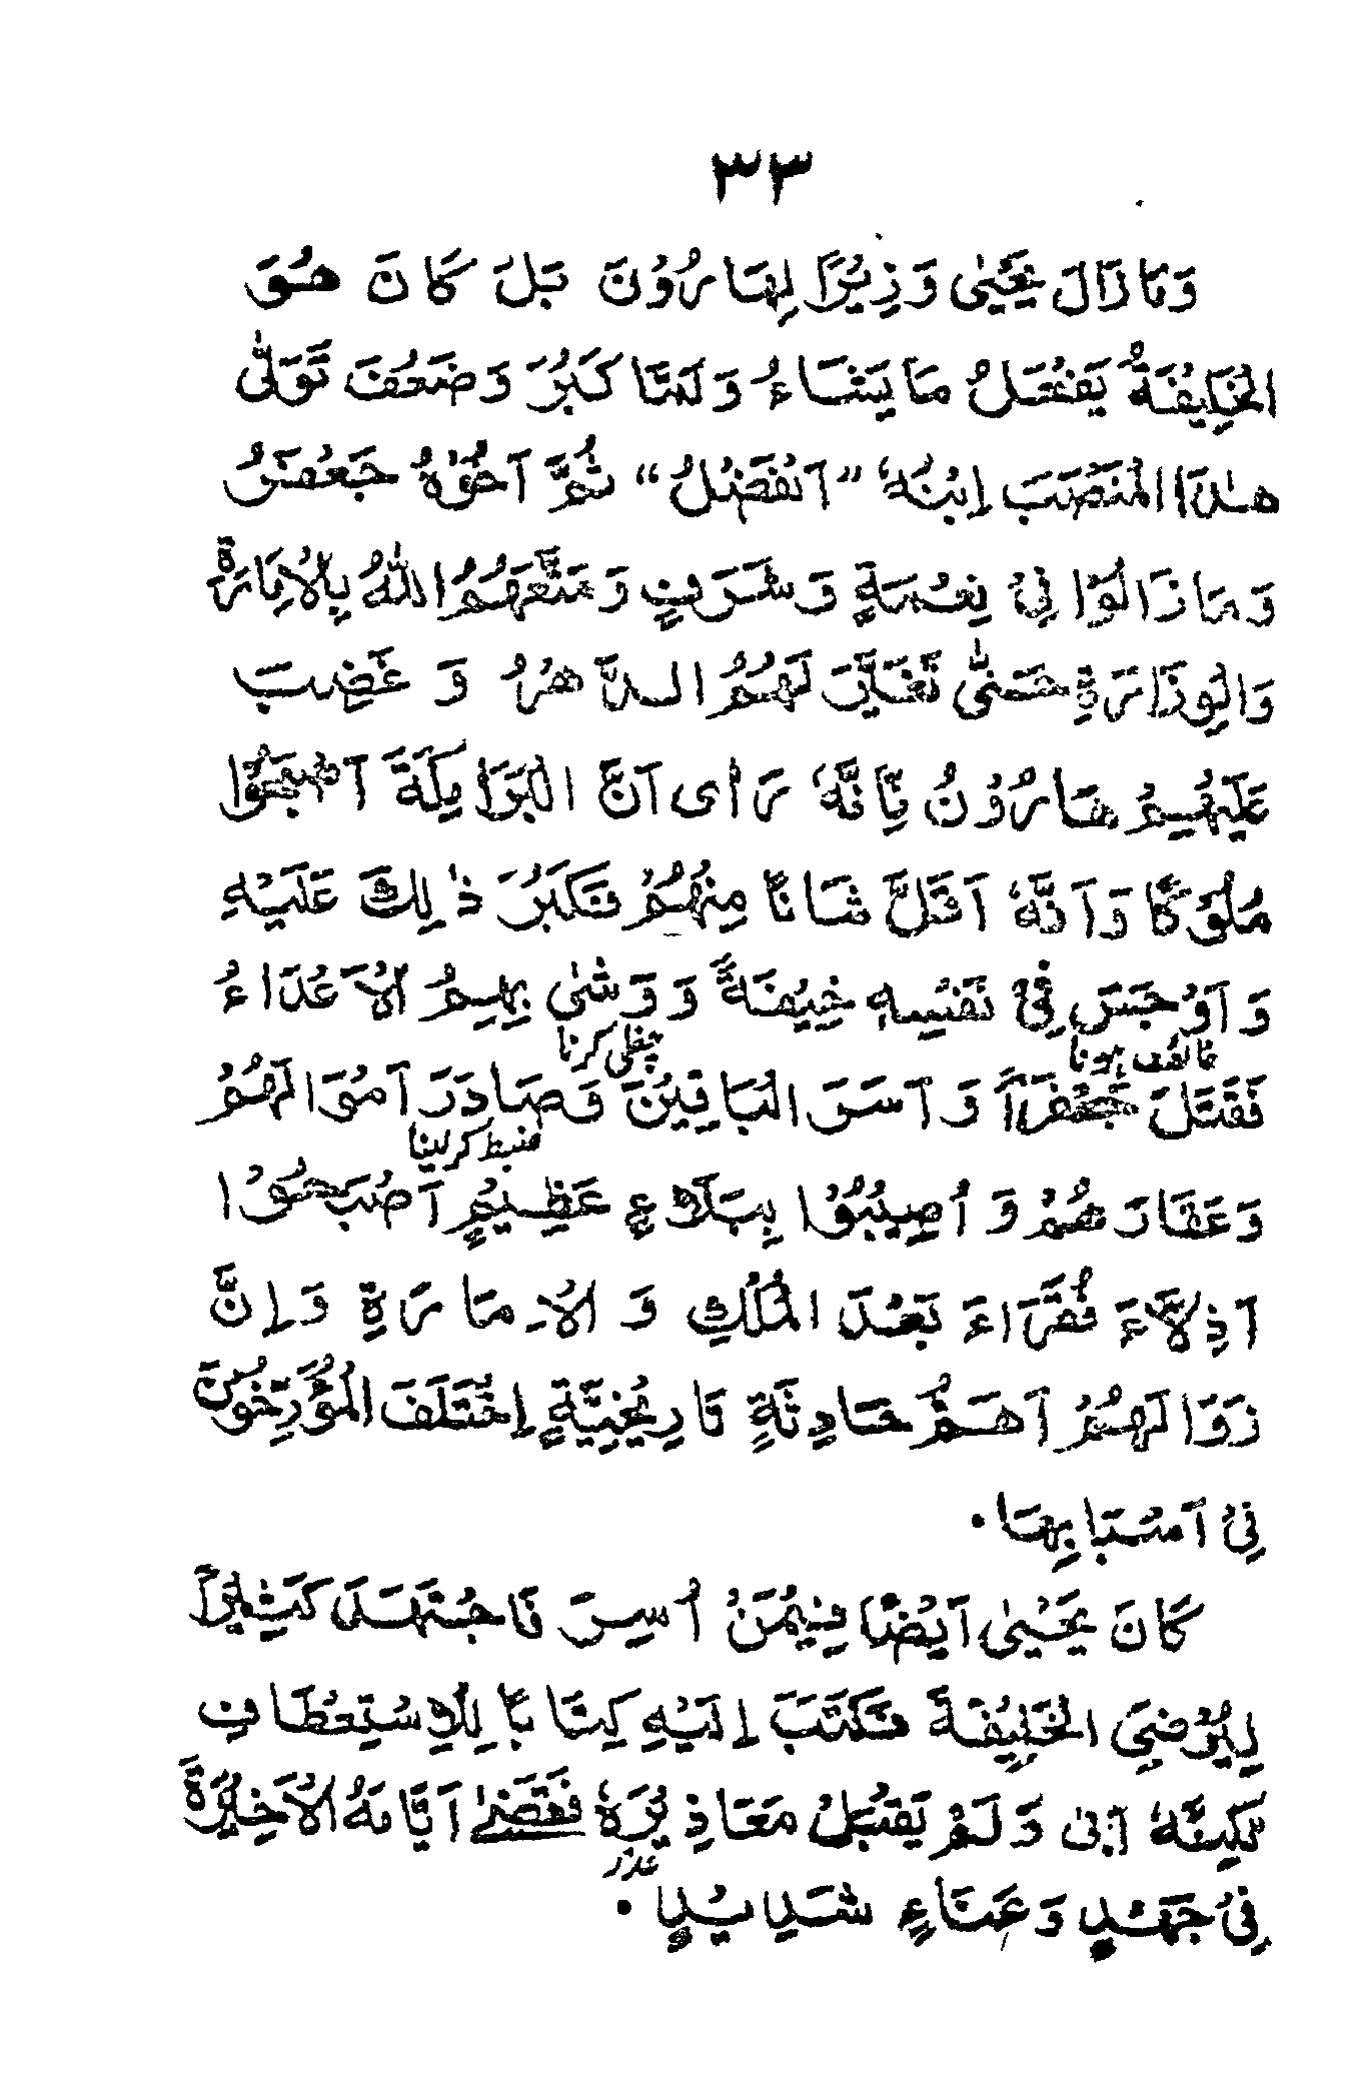 ٣٣
وَمَا زَالَ يَحْيٰى وَزِيْرًا لِهَارُوْنَ بَلْ كَانَ هُوَ
الْخَلِيْفَةُ يَفْعَلُ مَا يَشَاءُ وَلَمَّا كَبُرَ وَضَعُفَ تَوَلّٰى
هٰذَا الْمَنْصَبَ اِبْنُهٗ "اَلْفَضْلُ" ثُمَّ اَخُوْهُ جَعْفَرُ
وَمَا زَالُوْا فِيْ نِعْمَةٍ وَشَرَفٍ وَمَتَّعَهُمُ اللّٰهُ بِالْاِمَارَةِ
وَالْوِزَارَةِ حَتّٰى تَغَيَّرَ لَهُمُ الدَّهْرُ وَغَضِبَ
عَلَيْهِمْ هَارُوْنُ بِاَنَّهٗ رَاٰى اَنَّ الْبَرَامِكَةَ اَصْبَحُوْا
مُلُوْكًا وَاَنَّهٗ اَقَلَّ شَانًا مِنْهُمْ فَكَبُرَ ذٰلِكَ عَلَيْهِ
وَاَوْجَسَ فِيْ نَفْسِهٖ خِيْفَةً وَوَشٰى بِهِمُ الْاَعْدَاءُ
خائف ہونا چغلی کرنا
فَقَتَلَ جَعْفَرًا وَاَسَرَ الْبَاقِيْنَ وَصَادَرَ اَمْوَالَهُمْ
ضبط کر لینا
وَعَقَارَهُمْ وَاُصِيْبُوْا بِبَلَاءٍ عَظِيْمٍ اَصْبَحُوْا
اَذِلَّاءَ فُقَرَاءَ بَعْدَ الْمُلْكِ وَالْاِمَارَةِ وَاِنَّ
زَوَالَهُمْ اَهَمُّ حَادِثَةٍ تَارِيْخِيَّةٍ اِخْتَلَفَ الْمُؤَرِّخُوْنَ
فِيْ اَسْبَابِهَا۔
كَانَ يَحْيٰى اَيْضًا فِيْمَنْ اُسِرَ فَاجْتَهَدَ كَثِيْرًا
لِيُرْضِيَ الْخَلِيْفَةَ فَكَتَبَ اِلَيْهِ كِتَابًا لِلْاِسْتِعْطَافِ
لٰكِنَّهٗ اَبٰى وَلَمْ يَقْبَلْ مَعَاذِيْرَهٗ فَقَضٰى اَيَّامَهُ الْاَخِيْرَةَ
عذر
فِيْ جَهْدٍ وَعَنَاءٍ شَدِيْدٍ۔